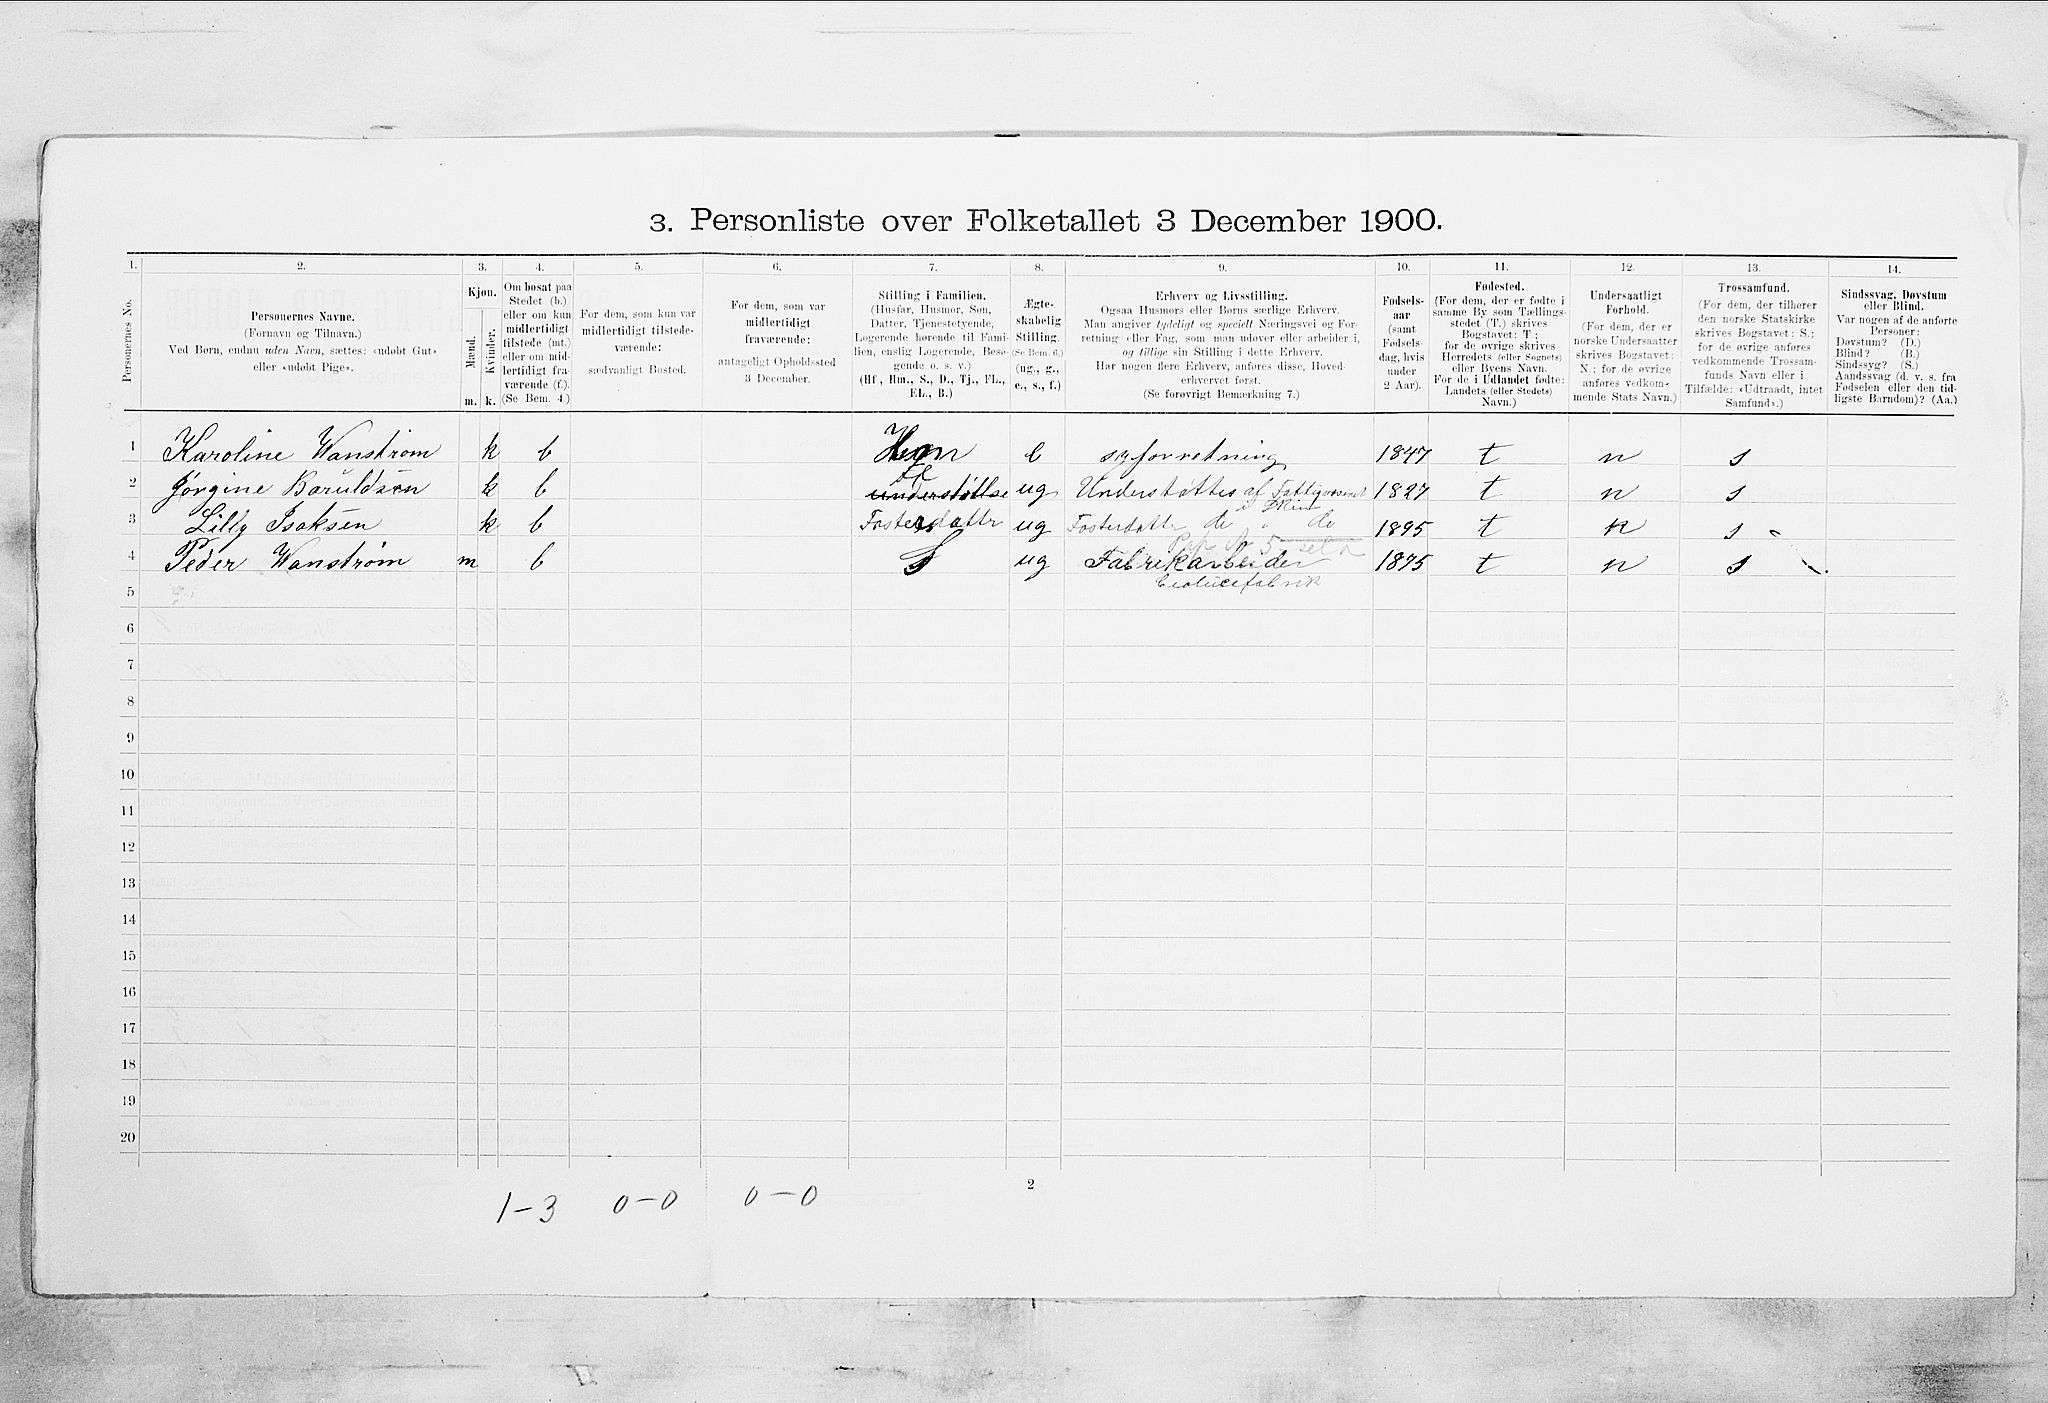 3. Personliste over Folketallet 3 December 1900.
1. 2. 3. 4. 5. 6. 7. 8. 9. 10. 11. 12. 13. 14.
Personernes No.
Personernes Navne.
(Fornavn og Tilnavn.)
Ved Børn, endnu uden Navn, sættes: «udøbt Gut»
eller «udøbt Pige».
Kjøn.
Mænd.
Kvinder.
m. k.
Om bosat paa
Stedet (b.)
eller om kun
midlertidigt
tilstede (mt.)
eller om mid-
lertidigt fra-
værende (f.).
(Se Bem. 4.)
For dem, som kun var
midlertidigt tilstede-
værende:
sædvanligt Bosted.
For dem, som var
midlertidigt
fraværende:
antageligt Opholdssted
3 December.
Stilling i Familien.
(Husfar, Husmor, Søn,
Datter, Tjenestetyende,
Logerende hørende til Fami-
lien, enslig Logerende, Besø-
gende o. s. v.)
(Hf., Hm., S., D., Tj., FL.,
EL., B.)
Ægte-
skabelig
Stilling.
(Se Bem. 6.)
(ug., g.,
e., s., f.)
Erhverv og Livsstilling.
Ogsaa Husmors eller Børns særlige Erhverv.
Man angiver tydeligt og specielt Næringsvei og For-
retning eller Fag, som man udøver eller arbeider i,
og tillige sin Stilling i dette Erhverv.
Har nogen flere Erhverv, anføres disse, Hoved-
erhvervet først.
(Se forøvrigt Bemærkning 7.)
Fødsels-
aar
(samt
Fødsels-
dag, hvis
under
2 Aar).
Fødested.
(For dem, der er fødte i
samme By som Tællings-
stedet (T.) skrives
Bogstavet: T;
for de øvrige skrives
Herredets (eller Sognets)
eller Byens Navn.
For de i Udlandet fødte:
Landets (eller Stedets)
Navn.)
Undersaatligt
Forhold.
(For dem, der er
norske Undersaatter
skrives Bogstavet:
N.; for de øvrige
anføres vedkom-
mende Stats Navn.)
Trossamfund.
(For dem, der tilhører
den norske Statskirke
skrives Bogstavet: S.;
for de øvrige anføres
vedkommende Trossam-
funds Navn eller i
Tilfælde: «Udtraadt, intet
Samfund».)
Sindssvag, Døvstum
eller Blind.
Var nogen af de anførte
Personer:
Døvstum? (D.)
Blind? (B.)
Sindssyg? (S.)
Aandssvag (d. v. s. fra
Fødselen eller den tid-
ligste Barndom)? (Aa.)
1 Karoline Wanstrøm k b Hm e syforretning 1847 t n s
2 Jørgine Baruldsen k b understøttse ug Understøttes af Fattigvesenet 1827 t n s
3 Lilly Isaksen k b Fosterdatter ug Fosterdatter do " do 1895 t n s
4 Peder Wanstrøm m b S ug Fabrikarbeider 1875 t n s
5
6
7
8
9
10
11
12
13
14
15
16
17
18
19
20
2
1-3 0-0 0-0